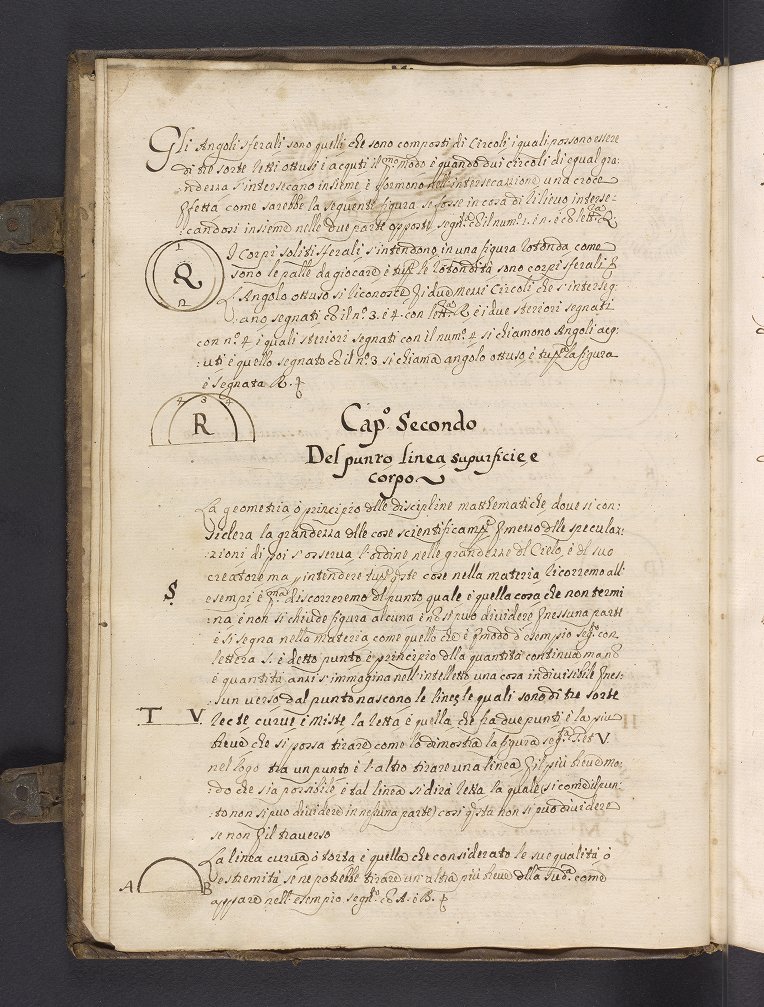 Gli Angoli sferali sono quelli che sono composti di Circoli i quali possono essere
di tre sorte retti ottusi i acquti il p.mo modo è quando dui circoli di egual gra:
:ndezza s'intersecano insieme i formono nell'intersecazzione una croce
come sarebbe la sequente figura se fosse in cosa di rilievo interse:
:candosi insieme nelle due parte opposte segn.te cō il num.o 1. e 2. e cō lett.ra Q.
I Corpi soliti sferali s'intendono in una figura rotonda come
1
Q
2
sono le palle da giocare e tutte le rotondità sono corpi sferali
L'Angolo ottuso si riconosce due mezzi Circoli che s'interseg:
:ano segnati cō il n.o 3. e 4. con lett.ra R e i due steriori segnati
con n.o 4 i quali steriori segnati con il num.o 4 si chiamono Angoli acq:
:uti e quello segnato cō il n.o 3 si chiama angolo ottuso e la figura
è segnata R.
4 3 4
R
Cap.o Secondo
Del punto linea supurficie e
corpo
La geometria è principio delle discipline matthematiche dove si con:
:siclera la grandezza delle cose scientificam.te mezzo delle speculaz:
:zioni di poi s'osserva l'ordine nelle grandezze del Cielo, e del suo
creatore ma intendere queste cose nella materia ricorremo all'
S.
esempi e p.ma discorreremo del punto quale è quella cosa che non termi
:na e non si chiude figura alcuna e nō si puo dividere nessuna parte
e si segna nella materia come quello che è modo d'esempio seg.to con
lettera S. è detto punto è principio della quantità continua ma nō
è quantità anzi s'immagina nell'intelletto una cosa indivisibile nes:
:sun verso dal punto nascono le linee le quali sono di tre sorte
T V.
Recte curve e Miste la retta è quella che fra due punti è la piu
breve che si possa tirare come lo dimostra la figura seg.ta T et V.
nel logo tra un punto e l'altro tirare una linea il più breve mo:
:do che sia possibile, e tal linea si dira retta la quale (si come il pun:
:to non si puo dividere in nessuna parte) cosi q.sta non si può dividere
se non il traverso
La linea curva ò torta è quella che considerato le sue qualità ò
A B
estremità se ne potrebbe tirare un'altra più breve della Sud.a come
appare nell'esempio segn.to cō A. e B.